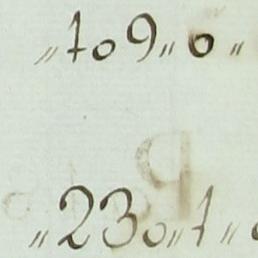 „109„0„
„230„1„